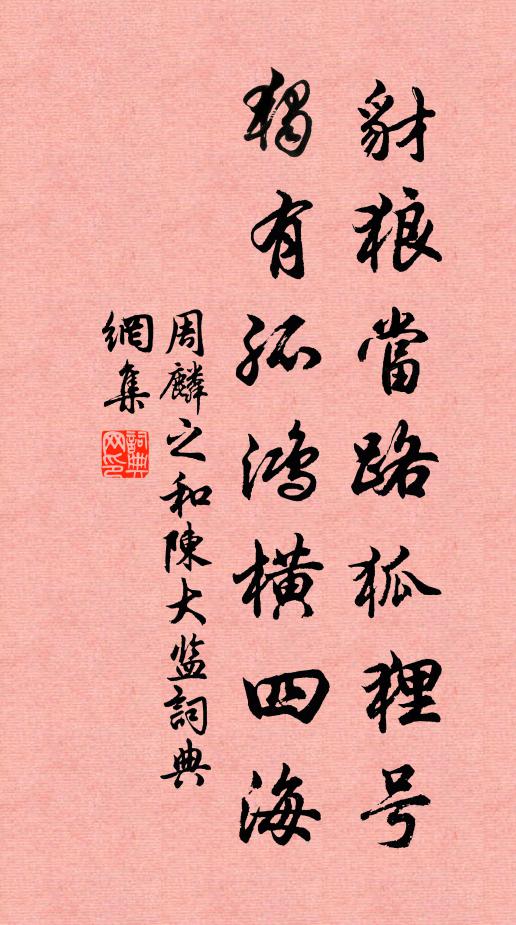 豺狼當路狐狸号
獨有孤鴻橫四海
周麟之和陳大监詞典
網集
詞典网印